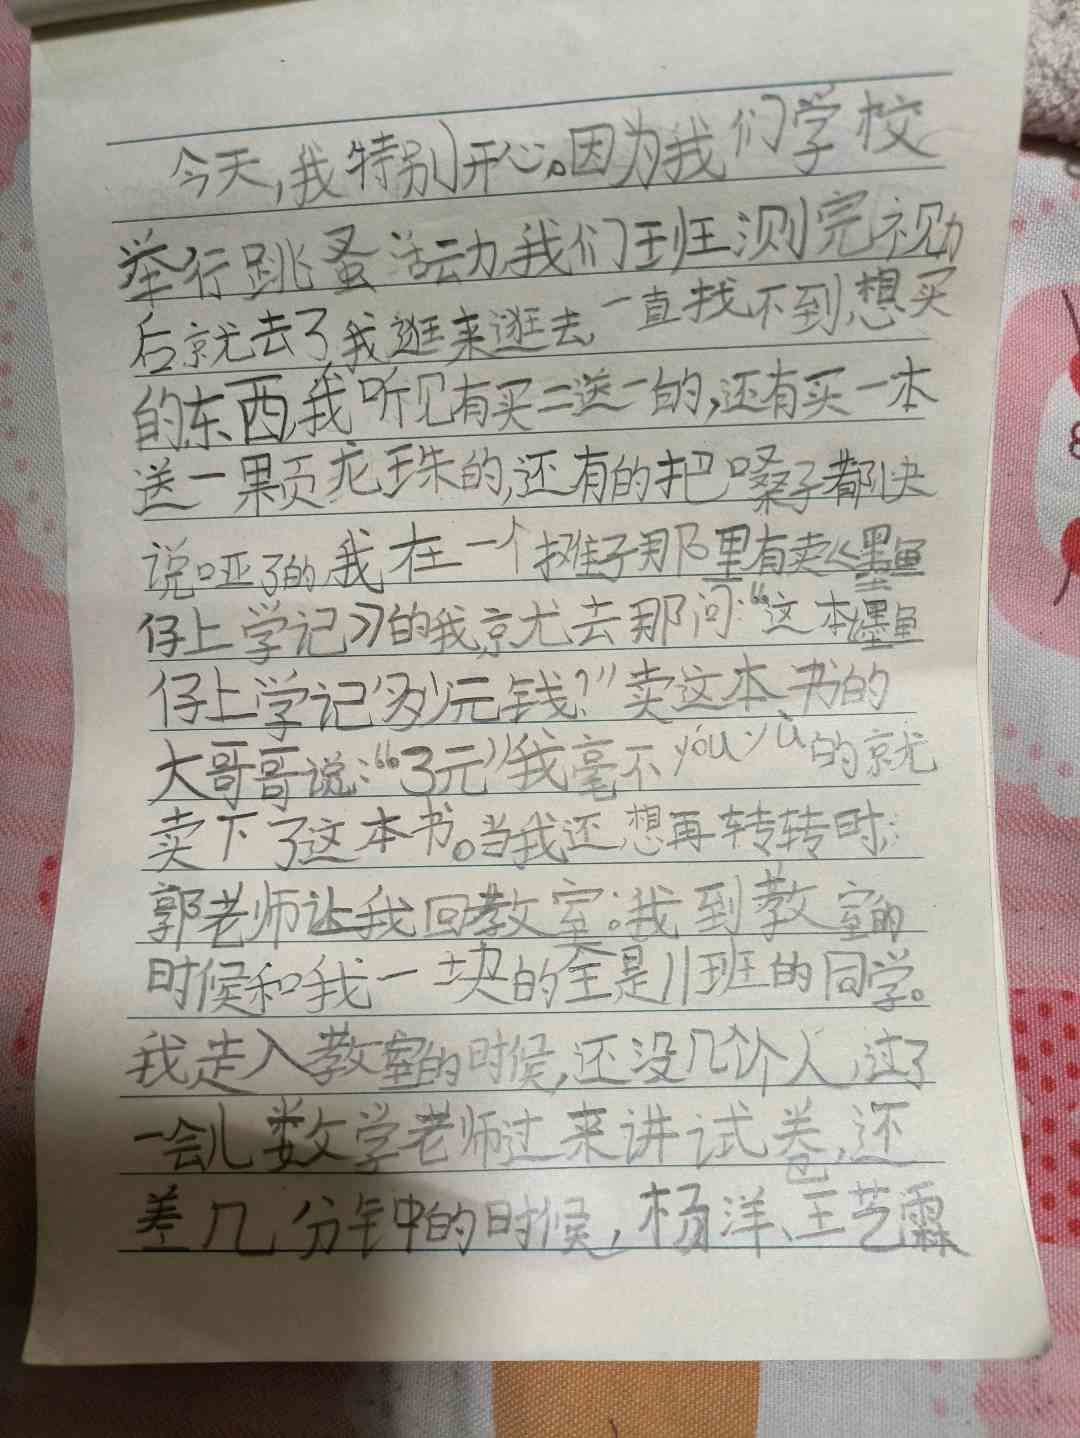 今天,我特别开心。因为我们学校
举行跳蚤活动,我们班测完视力
后就去了我逛来逛去,一直找不到,想买
的东西,我听见有买二送一的,还有买一本
送一果页龙珠的,还有的把嗓子都快
说哑了的,我在一个摊子那里有卖《墨鱼
仔上学记》的我就去那问:“这本墨鱼
仔上学记多少元钱?”卖这本书的
大哥哥说:“3元”我毫不yóu yù的就
卖下了这本书。当我还想再转转时,
郭老师让我回教室.我到教室的
时候和我一块的全是儿班的同学。
我走入教室的时候,还没几个人,过了
一会儿数学老师过来讲试卷,还
差几分钟的时候,杨洋、王艺霖